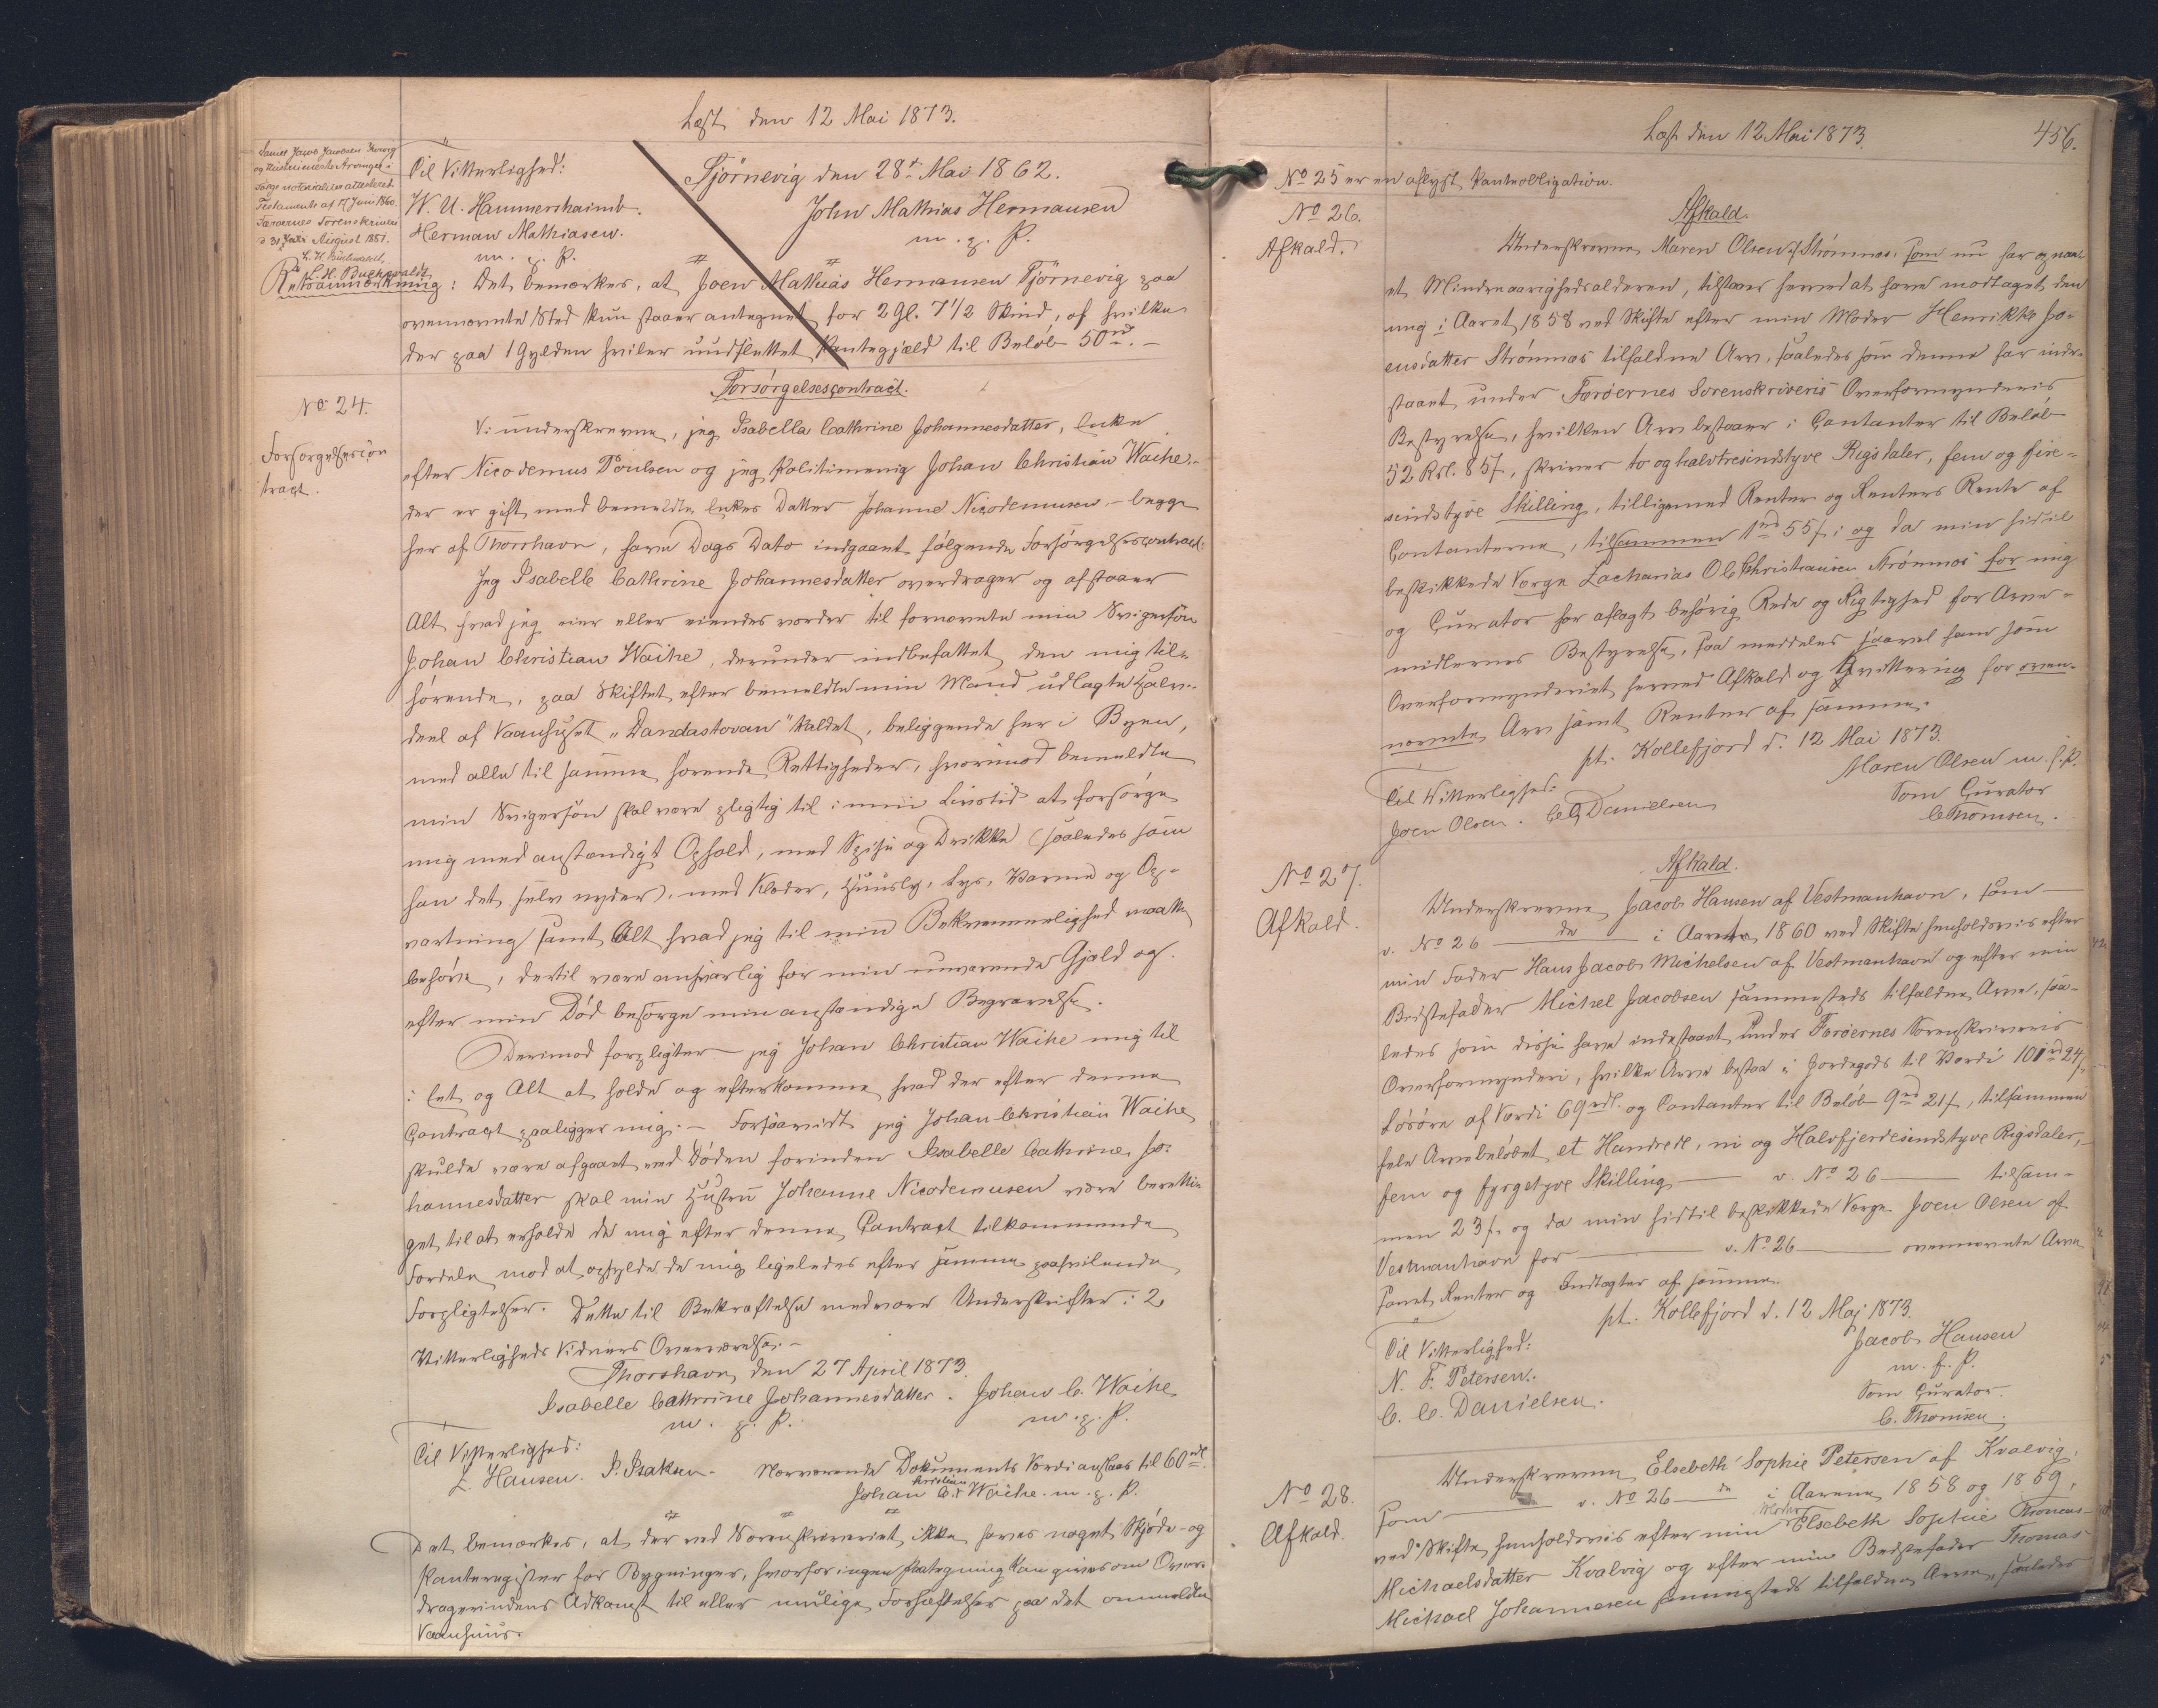 Læst den 12 Mai 1873.
Til Vitterlighed:
Tjörnevig den 28de Mai 1862.
W. U. Hammershaimb.
John Mathias Hermansen
Herman Mathiasen.
m. p. P.
m. p. P.
Testamente af 17 Juni 1860.
Færoernes Sorenskriveri
August 1851.
L. H. Buchwaldt
Retsanmærkning: Det bemærkes, at Joen Mathias Hermansen Tjörnevig paa
ovennævnte Sted kun staaer antegnet for 2 Gl. 7 1/2 Skind, af hvilke
der paa 1 Gylden hviler uudslettet Pantegjæld til Beløb 50rd. —
Forsørgelsescontract.
No 24.
Forsorgelsescon
tract.
Vi underskrevne, jeg Isabella Cathrine Johannesdatter, Enke
efter Nicodemus Poulsen og jeg Politimenig Johan Christian Waihe,
der er gift med bemeldte Enkes Datter Johanne Nicodemusen – begge
her af Thorshavn, have Dags Dato indgaaet følgende Forsörgelsescontract:
Jeg Isabelle Cathrine Johannesdatter overdrager og afstaaer
Alt hvad jeg eier eller eiendes vorder til fornævnte min Svigersön
Johan Christian Waihe, derunder indbefattet den mig til-
hørende, paa Skiftet efter bemeldte min Mand udlagte Halv-
deel af Vaanhuset „Dandastovan" kaldet, beliggende her i Byen,
med alle til samme hørende Rettigheder, hvorimod bemeldte
min Svigersön skal være pligtig til i min Livstid at forsörge
mig med anstændigt Ophold, med Spise og Drikke (saaledes som
han det selv nyder), med Klæder, Huusly, Lys, Varme og Op-
vartning samt Alt hvad jeg til min Bekvemmelighed maatte
behøve, dertil være ansvarlig for min nuværende Gjæld og
efter min Död besörge min anstændige Begravelse.
Derimod forpligter jeg Johan Christian Waihe mig til
i Eet og Alt at holde og efterkomme hvad der efter denne
Contract paaligger mig. – Forsaavidt jeg Johan Christian Waihe
skulde være afgaaet ved Döden forinden Isabelle Cathrine Jo-
hannesdatter skal min Hustru Johanne Nicodemusen være beretti-
get til at erholde de mig efter denne Contract tilkommende
Fordele mod at opfylde de mig ligeledes efter samme paahvilende
Forpligtelser. Dette til Bekræftelse med vore Underskrifter i 2
Vitterligheds Vidners Overværelse. –
Thorshavn den 27 April 1873.
Isabelle Cathrine Johannesdatter. Johan C. Waihe
m. p. P. m. p. P.
Til Vitterlighed:
L. Hansen. P. Isaksen. Nærværende Dokuments Værdi anslaaes til 60rdl.
Johan Christian Waihe. m. p. P.
Det bemærkes, at der ved Sorenskriveriet ikke haves noget Skjöde- og
Panteregister for Bygninger, hvorfor ingen Paategning kan gives om Over-
dragerindens Adkomst til eller mulige Forhæftelser paa det ommeldte
Vaanhuus.
Læst den 12 Mai 1873.
456.
No 25 er en aflyst Panteobligation.
No 26.
Afkald.
Afkald.
Underskrevne Maren Olsen af Strømnæs, som nu har opnaa-
et Mindreaarighedsalderen, tilstaaer herved at have modtaget den
mig i Aaret 1858 ved Skifte efter min Moder Henrikke Jo-
ensdatter Strømnæs tilfaldne Arv, saaledes som denne har inde-
staaet under Færøernes Sorenskriveris Overformynderis
Bestyrelse, hvilken Arv bestaaer i Contanter til Beløb
52 Rdl. 85ß, skriver to og halvtresindstyve Rigsdaler, fem og fire-
sindstyve Skilling, tilligemed Renter og Renters Rente af
Contanterne, tilsammen 1rd 55ß; og da min hidtil
beskikkede Værge Zacharias Ole Christiansen Strømnæs for mig
og Curator har aflagt behörig Rede og Rigtighed for Arve-
midlernes Bestyrelse, saa meddeles saavel ham som
Overformynderiet herved Afkald og Qvittering for oven-
nævnte Arv samt Renter af samme.
pt. Kollefjord d. 12 Mai 1873.
Til Vitterlighed:
Maren Olsen m. f. P.
Joen Olsen. C C Danielsen
Som Curator
C Thomsen.
No 27.
Afkald.
Afkald.
Underskrevne Jacob Hansen af Vestmanhavn, som —
v. No 26 — de — i Aarene 1860 ved Skifte henholdsvis efter
min Fader Hans Jacob Michelsen af Vestmanhavn og efter min
Bedstefader Michel Jacobsen sammesteds tilfaldne Arve, saa-
ledes som disse have indestaaet under Færøernes Sorenskriveris
Overformynderi, hvilke Arve bestaa i Jordegods til Værdi 101rd 24ß
Løsøre af Værdi 69rdl. og Contanter til Beløb 9rd 21ß, tilsammen
hele Arvebeløbet et Hundrede, ni og Halvfjerdesindstyve Rigsdaler,
fem og fyrgetyve Skilling — v. No 26 — tilsam-
men 23ß og da min hidtil beskikkede Værge Joen Olsen af
Vestmanhavn for — v. No 26 — ovennævnte Arve
samt Renter og Indtægter af samme.
pt. Kollefjord d. 12 Maj 1873.
Til Vitterlighed:
Jacob Hansen
m. f. P.
N. F. Petersen.
Som Curator.
C. C. Danielsen.
C. Thomsen.
No 28.
Afkald.
Underskrevne Elsebeth Sophie Petersen af Kvalvig,
som — v. No 26 — de i Aarene 1858 og 1869,
ved Skifte henholdsvis efter min Moder Elsebeth Sophie Thomas-
Michaelsdatter Kvalvig og efter min Bedstefader Thomas
Michael Johannesen sammesteds tilfaldne Arve, saaledes